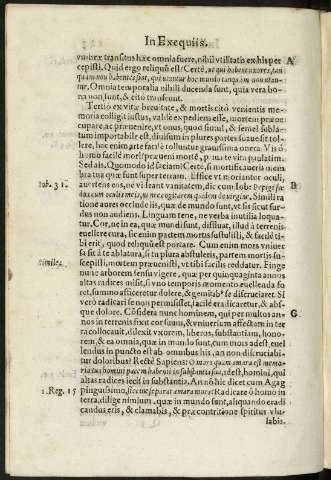 In Exequiis.
vmbræ transitus hæc omnia fuere, nihil vtilitatis ex his per
cepisti. Quid ergo reliquũ est? Certè, vt qui habent vxores, tan
quam non habentes sint, qui vtuntur hoc mundo tanquam non vtan-
tur. Omnia temporalia nihili ducenda sunt, quia vera bo-
na non sunt, & citò transeunt.
Tertio ex vitæ breuitate, & mortis citò venientis me-
moria colligit iustus, valde expediens esse, mortem præoc-
cupare, ac præuenire, vt onus, quod simul, & semel subla-
tum importabile est, diuisum in plures partes suauè sit tol-
lere, hac enim arte facilè tolluntur grauissima onera. Vis ô
homo facilè mori? præueni mortẽ,
Sed ais. Quomodo id faciam? Certè, si mortificaueris mem
bra tua quæ sunt super terram. Effice vt moriantur oculi,
Iob. 31. auertens eos, ne videant vanitatem, dic cum Iob: Pepigi fœ-
dus cum oculis meis, vt ne cogitarem quidem de virgine. Simili ra
tione aures occlude iis, quæ de mundo sunt, vt sis sicut sur-
dus non audiens. Linguam tene, ne verba inutilia loqua-
tur. Cor, ne in ea, quæ mundi sunt, diffluat, illud à terrenis
euellere cura, sic enim partem mortis sustulisti, & facilè ti-
bi erit, quod reliquũ est portare. Cum enim mors vniuer
sa sit à te ablatura, si tu plura abstuleris, partem mortis su-
Simile. scepisti, mortem præuenisti, vt tibi facilis reddatur. Finge
nunc arborem sensu vigere, quæ per quinquaginta annos
altas radices misit, si vno temporis momento euellenda fo
ret, summo afficeretur dolere, & gemitib9 se discruciaret. Si
verò radicari se non permisisset, facilè eradicaretur, & abs-
que dolore. Cõsidera nunc hominem, qui per multos an-
nos in terrenis fixit cor suum, & vniuersum affectum in ter
ra collocauit, dilexit vxorem, liberos, substantiam, hono-
rem, & ea omnia, quæ in mundo sunt, cum mors adest, euel
lendus in puncto est ab omnibus his, an non discruciabi-
tur doloribus? Rectè Sapiens: O mors quam amara est memo-
ria tua homini pacem habenti in substantiis suis, idest, homini, qui
altas radices iecit in substantia. An nõ hic dicet cum Agag
1. Reg. 15 pinguissimo, siccine separat amara mors? Radicate ô homo in
terra, dilige nimium, quæ in mundo sunt, aliquando eradi
candus eris, & clamabis, & præ contritione spiritus vlu-
labis.
A
B
C